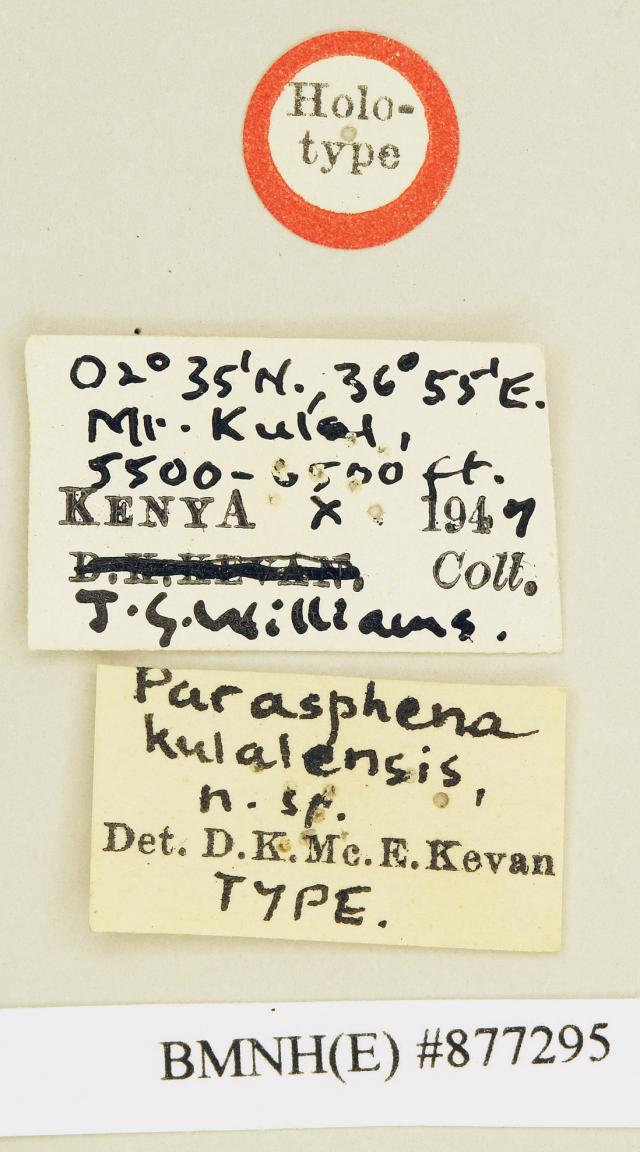 Holo-
type
02° 35'N., 36° 55'E.
Mt. Kulal,
5500-6500 ft.
KENYA X 1947
D.K.KEVAN. Coll.
J.G.Williams.
Parasphena
kulalensis,
n. sp.
Det. D.K.Mc.E.Kevan
TYPE.
BMNH(E) #877295